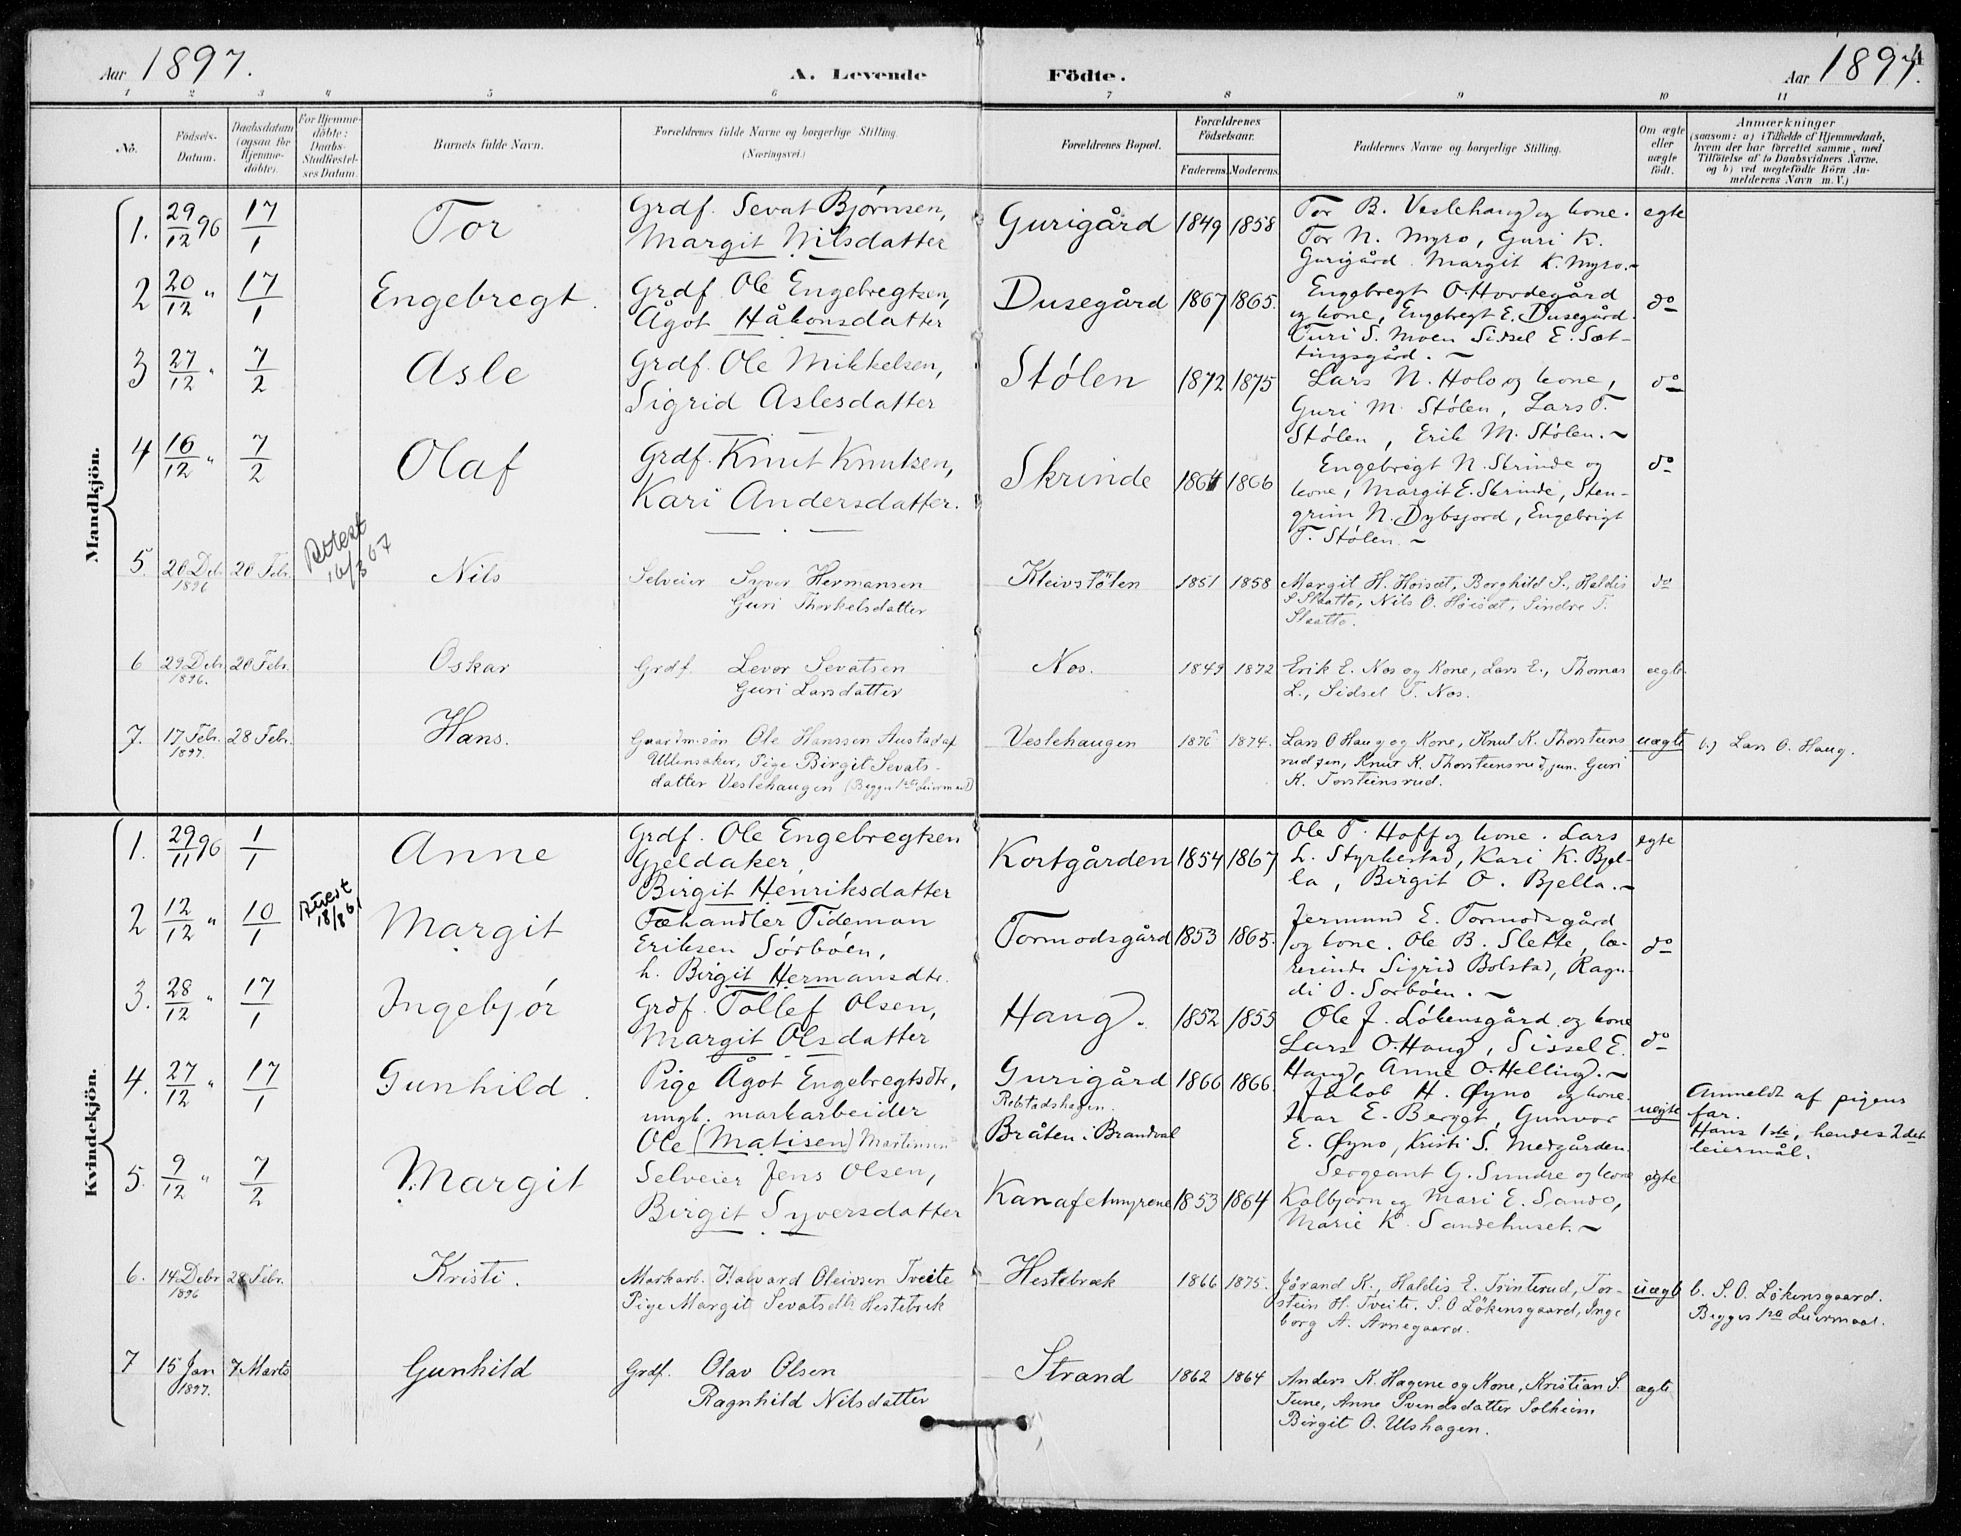 Aar 1897.
A. Levende Födte.
Aar 1897.
4
1 2 3 4 5 6 7 8 9 10 11
No.
Födsels-Datum.
Daabsdatum (ogsaa for Hjemme-döbte).
For Hjemme-döbte: Daabs-Stadfæstel-ses Datum.
Barnets fulde Navn.
Forældrenes fulde Navne og borgerlige Stilling. (Næringsvei.)
Forældrenes Bopæl.
Forældrenes Födselsaar.
Faderens. Moderens.
Faddernes Navne og borgerlige Stilling.
Om ægte eller uægte födt.
Anmærkninger
(saasom: a) i Tilfælde af Hjemmedaab,
hvem der har forrettet samme, med
Tilföielse af to Daabsvidners Navne,
og b) ved uegtefödte Börn An-
melderens Navn m. V.)
Mandkjön.
1. 29/12 96 17/1 Tor Grdf. Sevat Bjørnsen, Gurigård 1849 1858 Tor B. Veslehaug og kone. egte
Margit Nilsdatter Tor N. Myro, Guri K.
Gurigård. Margit K. Myro.~
2 20/12 " 17/1 Engebregt. Grdf. Ole Engebregtsen, Dusegård 1867 1865. Engebregt O. Hovdegård do
Ågot Håkonsdatter og kone, Engebregt E. Dusegård.
Turi S. Moen Sidsel E. Sæt-
tingsgård. ~
3 27/12 " 7/2 Asle Grdf. Ole Mikkelsen, Stølen 1872 1875 Lars N. Holo og kone, do
Sigrid Aslesdatter Guri M. Stølen, Lars T.
Stølen, Erik M. Stølen.~
4 16/12 " 7/2 Olaf Grdf. Knut Knutsen, Skrinde 1864 1866 Engebrigt N. Skrinde og do
Kari Andersdatter. kone, Margit E. Skrinde, Sten-
grim N. Dybsjord, Engebrigt
T. Stølen. ~
5. 20 Dec. 1896 20 Febr. 16/3 67 Nils Selveier Syver Hermansen Kleivstölen 1851 1858 Margit H. Hoisæt, Borghild S., Haldis do
Guri Thorkelsdatter S Slaatto, Nils O. Höisæt, Sindre T.
Slaatto.
6 29 Debr 1896. 20 Febr. Oskar Grdf. Levor Sevatsen Nos. 1849 1872 Erik E. Nos og Kone, Lars E., Thomas ægte
Guri Larsdatter L., Sidsel T. Nos.
7. 17 Febr. 1897. 28 Febr. Hans. Gaardm.søn Ole Hanssen Austad af Veslehaugen 1876 1874. Lars O Haug og Kone, Knut K. Thorsteins uægte b.) Lars O. Haug.
Ullensaker, Pige Birgit Sevats- rud sen, Knut K. Thorsteinsrud jun. Guri
datter Veslehaugen (Begges 1ste Leiermaal) K. Torsteinsrud.
Kvindekjön.
1. 29/11 96 1/1 Anne Grdf. Ole Engebregtsen Kortgården 1854 1867 Ole T. Hoff og kone. Lars egte
Gjeldaker, L. Styrkestad, Kari K. Bjel-
Birgit Henriksdatter la, Birgit O. Bjella.~
2 12/12 " 10/1 18/8 61 Margit Fæhandler Tideman Tormodsgård 1853 1865. Jermund E. Tormodsgård do
Eriksen Sörböen, og kone. Ole B. Slette, læ-
h. Birgit Hermansdtr. rerinde Sigrid Bolstad, Ragn-
di O. Sorböen. ~
3. 28/12 " 17/1 Ingebjór Grdf. Tollef Olsen, Haug. 1852 1855 Ole J. Lökensgård og kone do
Margit Olsdatter Lars O. Haug, Sissel E.
Haug, Anne O. Helling.~
4. 27/12 " 17/1 Gunhild. Pige Ågot Engebregtsdtr, Gurigård 1866 1866. Jakob H. Øyno og kone. uegte Anmeldt af pigens
ungk. markarbeider Rolstadshagen. Ivar E. Berget, Gunvor far.
Ole (Matisen) Martinsen Bråten i Brandval E. Øyno, Kristi S. Medgården. Hans 1ste, hendes 2det
leiermål.
5. 9/12 " 7/2 Margit Selveier Jens Olsen, Kanafetmyrene 1853 1864 Sergeant G. Sundre og kone egte
Birgit Syversdatter Kolbjørn og Mari E. Sando,
Marie K. Sandehuset.~
6. 14 Debr 1896 28 Febr. Kristi. Markarb. Halvard Oleivsen Tveite Hestebræk 1866 1875. Jörand K., Haldis E. Trinterud, Tor- uægte b. S. O. Lökensgaard.
Pige Margit Sevatsdtr Hestebræk stein H. Tveite. S. O Lökensgaard, Inge Begges 1ste Leiermaal.
borg A. Arnegaard.
7 15 Jan 1897. 7 Marts Gunhild Grdf. Olav Olsen Strand 1862 1864 Anders K. Hagene og Kone, Kristian S. ægte
Ragnhild Nilsdatter Tune, Anne Svendsdatter Solheim
Birgit O. Ulshagen.